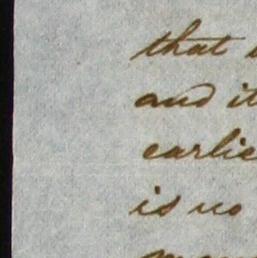 that
and it
earlie
is no